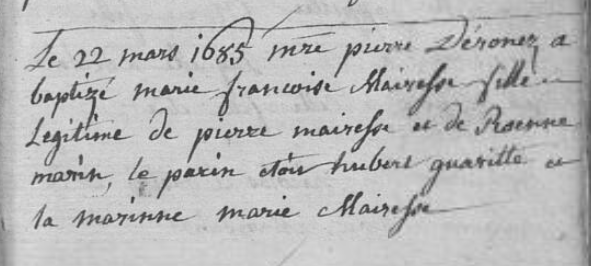 Le 22 mars 1685 mre pierre Déronez a
baptizé marie francoise Mairesse fille
Legitime de pierre mairesse et de
marin, le parin etoit hubert guaritte et
la marinne marie Mairesse